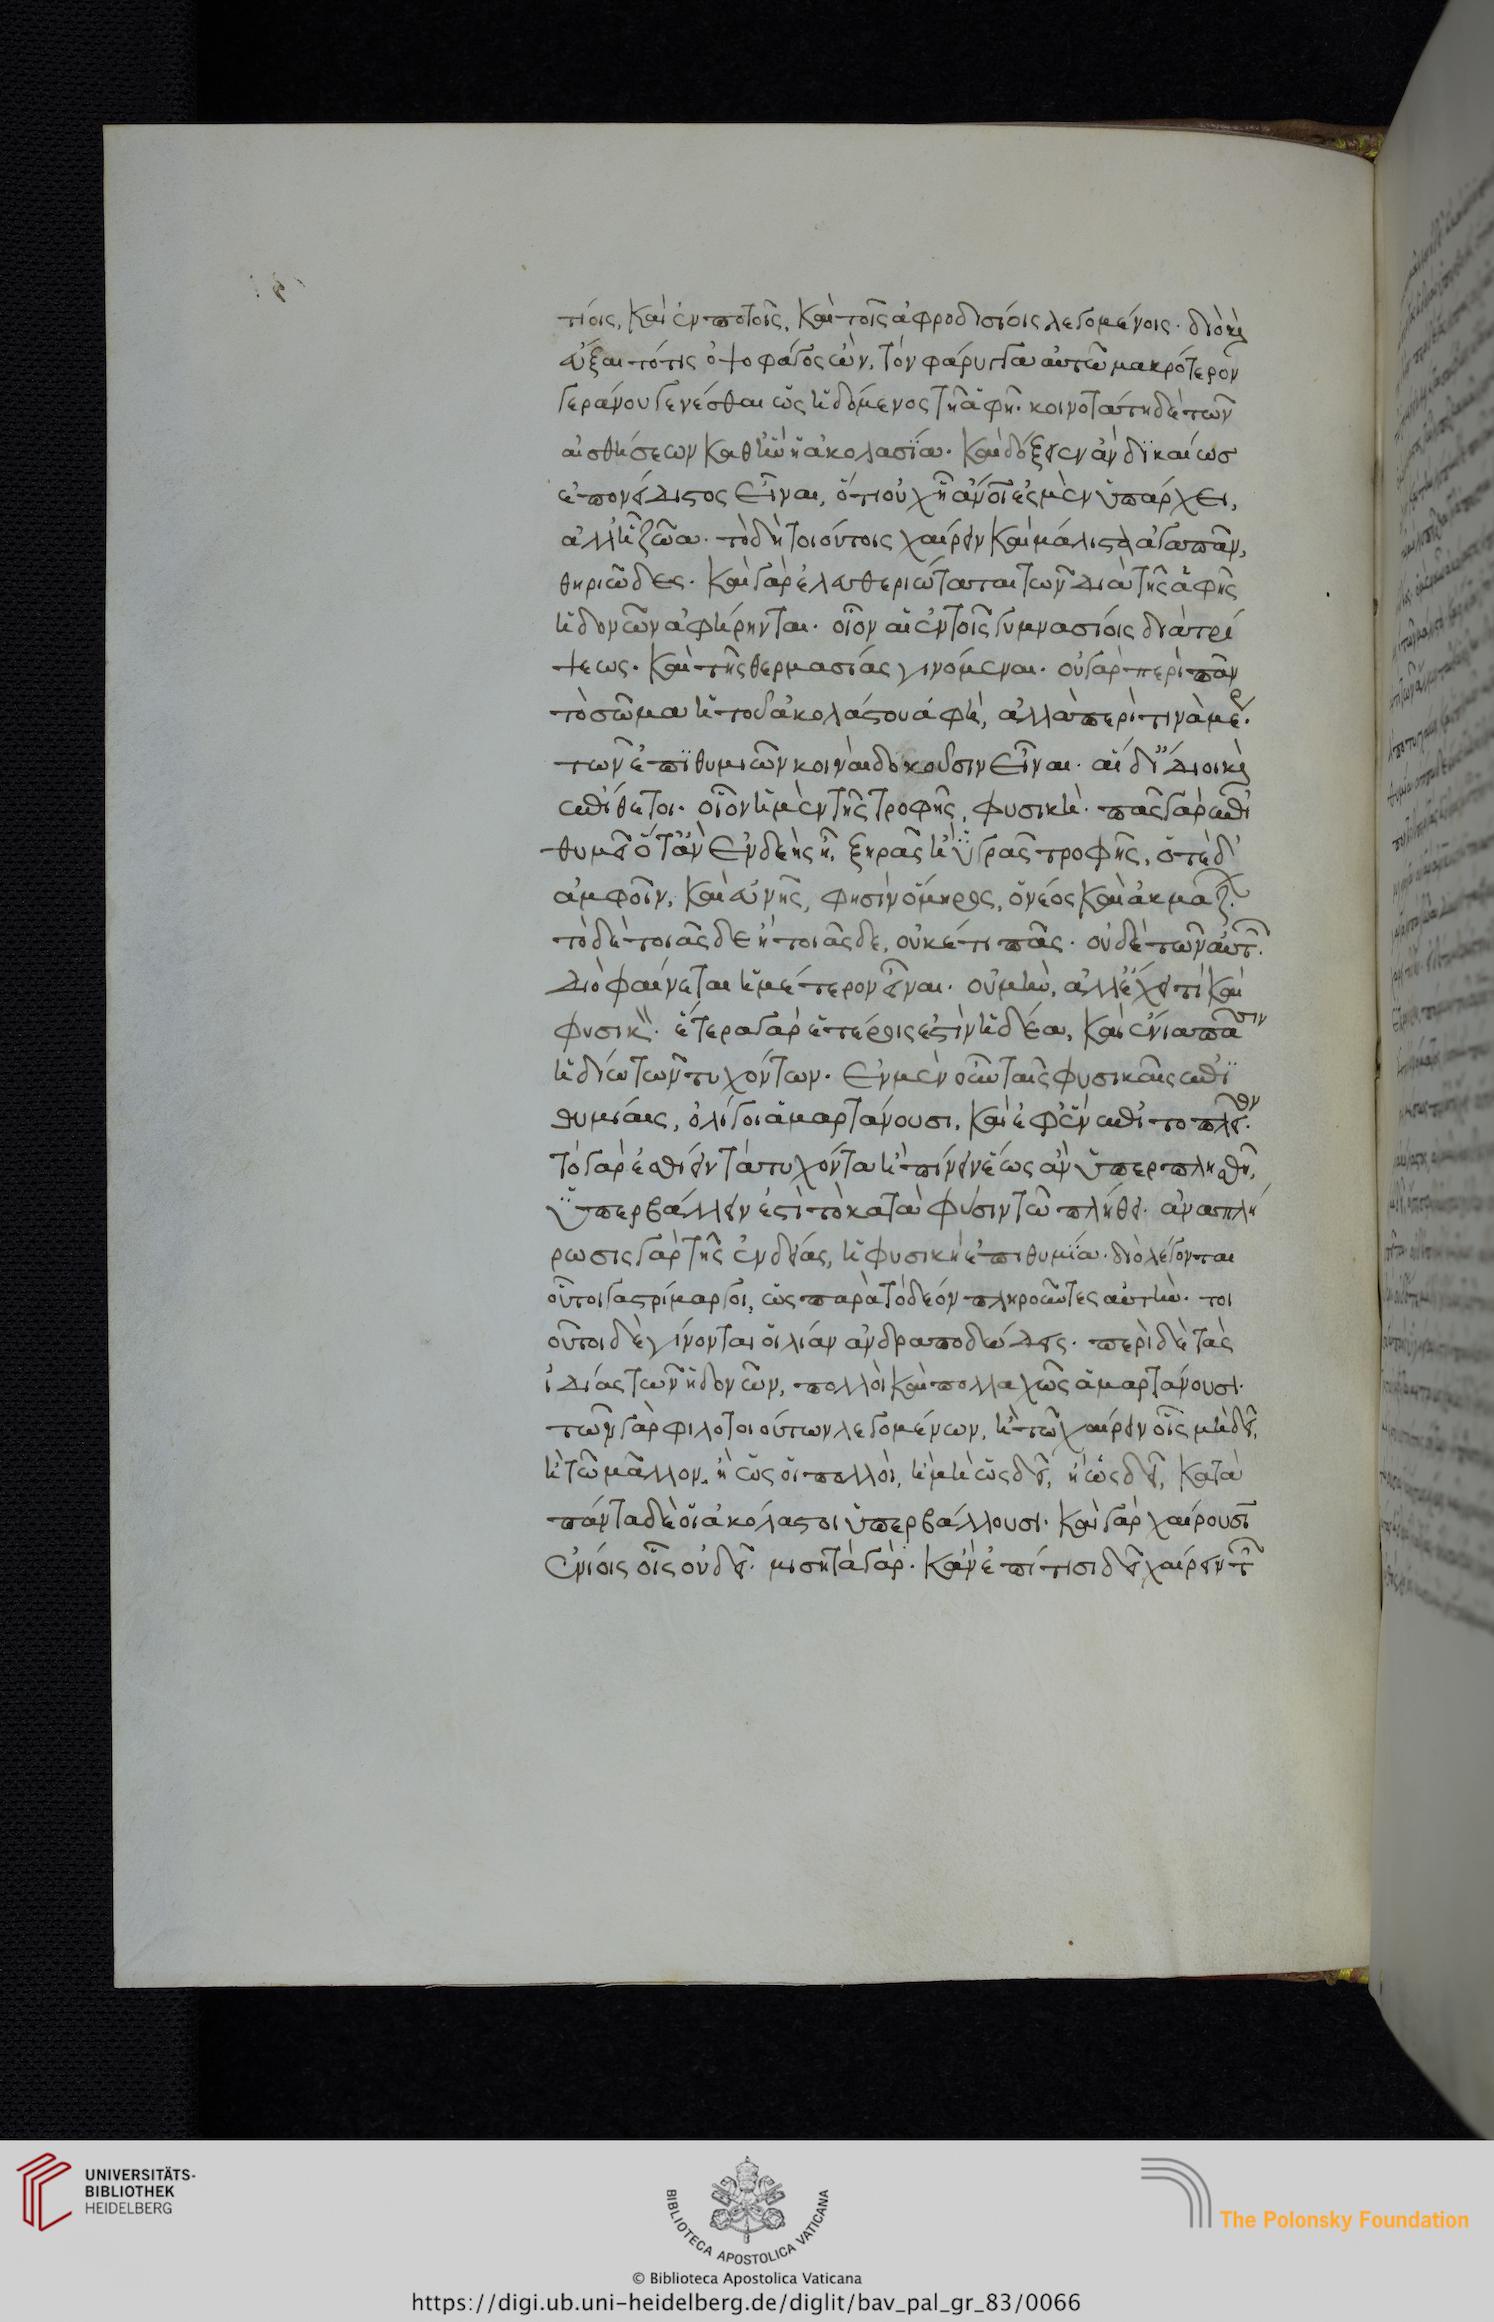 τίοις, καὶ ἐν ποτοῖς, καὶ τοῖς ἀφροδισίοις λεγομένοις. διὸ καὶ
εὔξατό τις ὀψοφάγος ὢν, τὸν φάρυγγα αὐτῶ μακρότερον
γεράνου γενέσθαι ὡς ἡδόμενος τῆ ἁφῆ. κοινοτάτη δὲ τῶν
αἰσθήσεων καθ' ἣν ἡ ἀκολασία. καὶ δόξειεν ἂν δικαίως
ἐπονείδιστος εἶναι, ὅτι οὐχ ἧ ἄνοι ἐσμὲν ὑπάρχει,
ἀλλ' ἧ ζῶα. τὸ δὴ τοιούτοις χαίρειν καὶ μάλιστα ἀγαπᾶν,
θηριῶδες. καὶ γὰρ ἐλευθεριώταται τῶν διὰ τῆς ἁφῆς
ἡδονῶν ἀφήρηνται. οἷον αἱ ἐν τοῖς γυμνασίοις διὰ τρί
ψεως. καὶ τῆς θερμασίας γινόμεναι. οὐ γὰρ περὶ πᾶν
τὸ σῶμα ἡ τοῦ ἀκολάστου ἁφὴ, ἀλλὰ περί τινα μέρ.
τῶν ἐπιθυμιῶν κοιναὶ δοκοῦσιν εἶναι. αἱ δ' ἴδιοι καὶ
ἐπίθετοι. οἷον ἡ μὲν τῆς τροφῆς, φυσικὴ. πᾶς γὰρ ἐπι
θυμεῖ ὅταν ἐνδεὴς ἦ, ξηρᾶς ἢ ὑγρᾶς τροφῆς, ὁτὲ δ'
ἀμφοῖν, καὶ εὐνῆς, φησὶν ὅμηρος, ὁ νέος καὶ ἀκμάζ.
τὸ δὲ τοιᾶσδε ἢ τοιᾶσδε, οὐκέτι πᾶς. οὐδὲ τῶν αὐτ.
διὸ φαίνεται ἡμέτερον εἶναι. οὐ μὴν, ἀλλ' ἔχει τί καὶ
φυσικ. ἕτερα γὰρ ἑτέροις ἐστὶν ἡδέα, καὶ ἔνια πᾶσιν
ἡδίω τῶν τυχόντων. ἐν μὲν οὖν ταῖς φυσικαῖς ἐπι
θυμίαις, ὀλίγοι ἁμαρτάνουσι, καὶ ἐφ' ἓν ἐπὶ τὸ πλεῖον.
τὸ γὰρ ἐσθίειν τὰ τυχόντα ἢ πίνειν ἕως ἂν ὑπερπλησθῆ,
ὑπερβάλλειν ἐστὶ τὸ κατὰ φύσιν τῶ πλήθει. ἀναπλή
ρωσις γὰρ τῆς ἐνδείας, ἡ φυσικὴ ἐπιθυμία. διὸ λέγονται
οὗτοι γαστρίμαργοι, ὡς παρὰ τὸ δέον πληροῦντες αὐτὴν. τοι
οῦτοι δὲ γίνονται οἱ λίαν ἀνδραποδώδεις. περὶ δὲ τὰς
ἰδίας τῶν ἡδονῶν, πολλοὶ καὶ πολλαχῶς ἁμαρτάνουσι.
τῶν γὰρ φιλοτοιούτων λεγομένων, ἢ τῶ χαίρειν οἷς μὴ δεῖ,
ἢ τῶ μᾶλλον, ἢ ὡς οἱ πολλοὶ, ἢ μὴ ὡς δεῖ, ἢ ὡς δεῖ, κατὰ
πάντα δὲ οἱ ἀκόλαστοι ὑπερβάλλουσι. καὶ γὰρ χαίρουσιν
ἐνίοις οἷς οὐ δεῖ. μισητὰ γὰρ. κἂν ἐπί τισι δεῖ χαίρειν τ
UNIVERSITÄTS-
BIBLIOTHEK
HEIDELBERG
BIBLIOTECA APOSTOLICA VATICANA
The Polonsky Foundation
© Biblioteca Apostolica Vaticana
https://digi.ub.uni-heidelberg.de/diglit/bav_pal_gr_83/0066